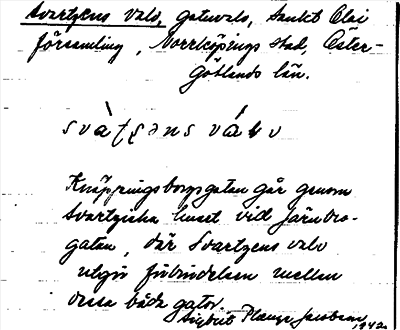 Svartzens valv, gatuvalv, Sankt Olai
församling, Norrköpings stad, Öster-
götlands län.
svàʈʂəns válv
Knäppingsborgsgatan går genom
Svartziska huset vid Järnbro-
gatan, där Svartzens valv
utgör förbindelsen mellan
dessa båda gator.
Sigbrit Plænge Jacobson, 1942.